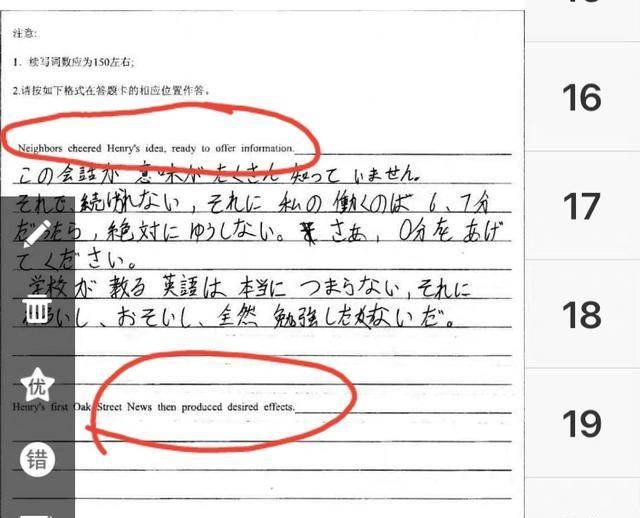 注意:
1. 续写词数应为150左右;
2.请按如下格式在答题卡的相应位置作答。
Neighbors cheered Henry's idea, ready to offer information.
この会話が 意味が たくさん 知って いません。
それで、続けれない，それに 私の 働くのは 6、7分
だったら，絶対に ゆうしない。さあ，0分を あげ
てください。
学校が 教る 英語は 本当に つまらない，それに
し、おそいし、全然 勉強したくないだ。
Henry's first Oak Street News then produced desired effects.
优
错
16
17
18
19